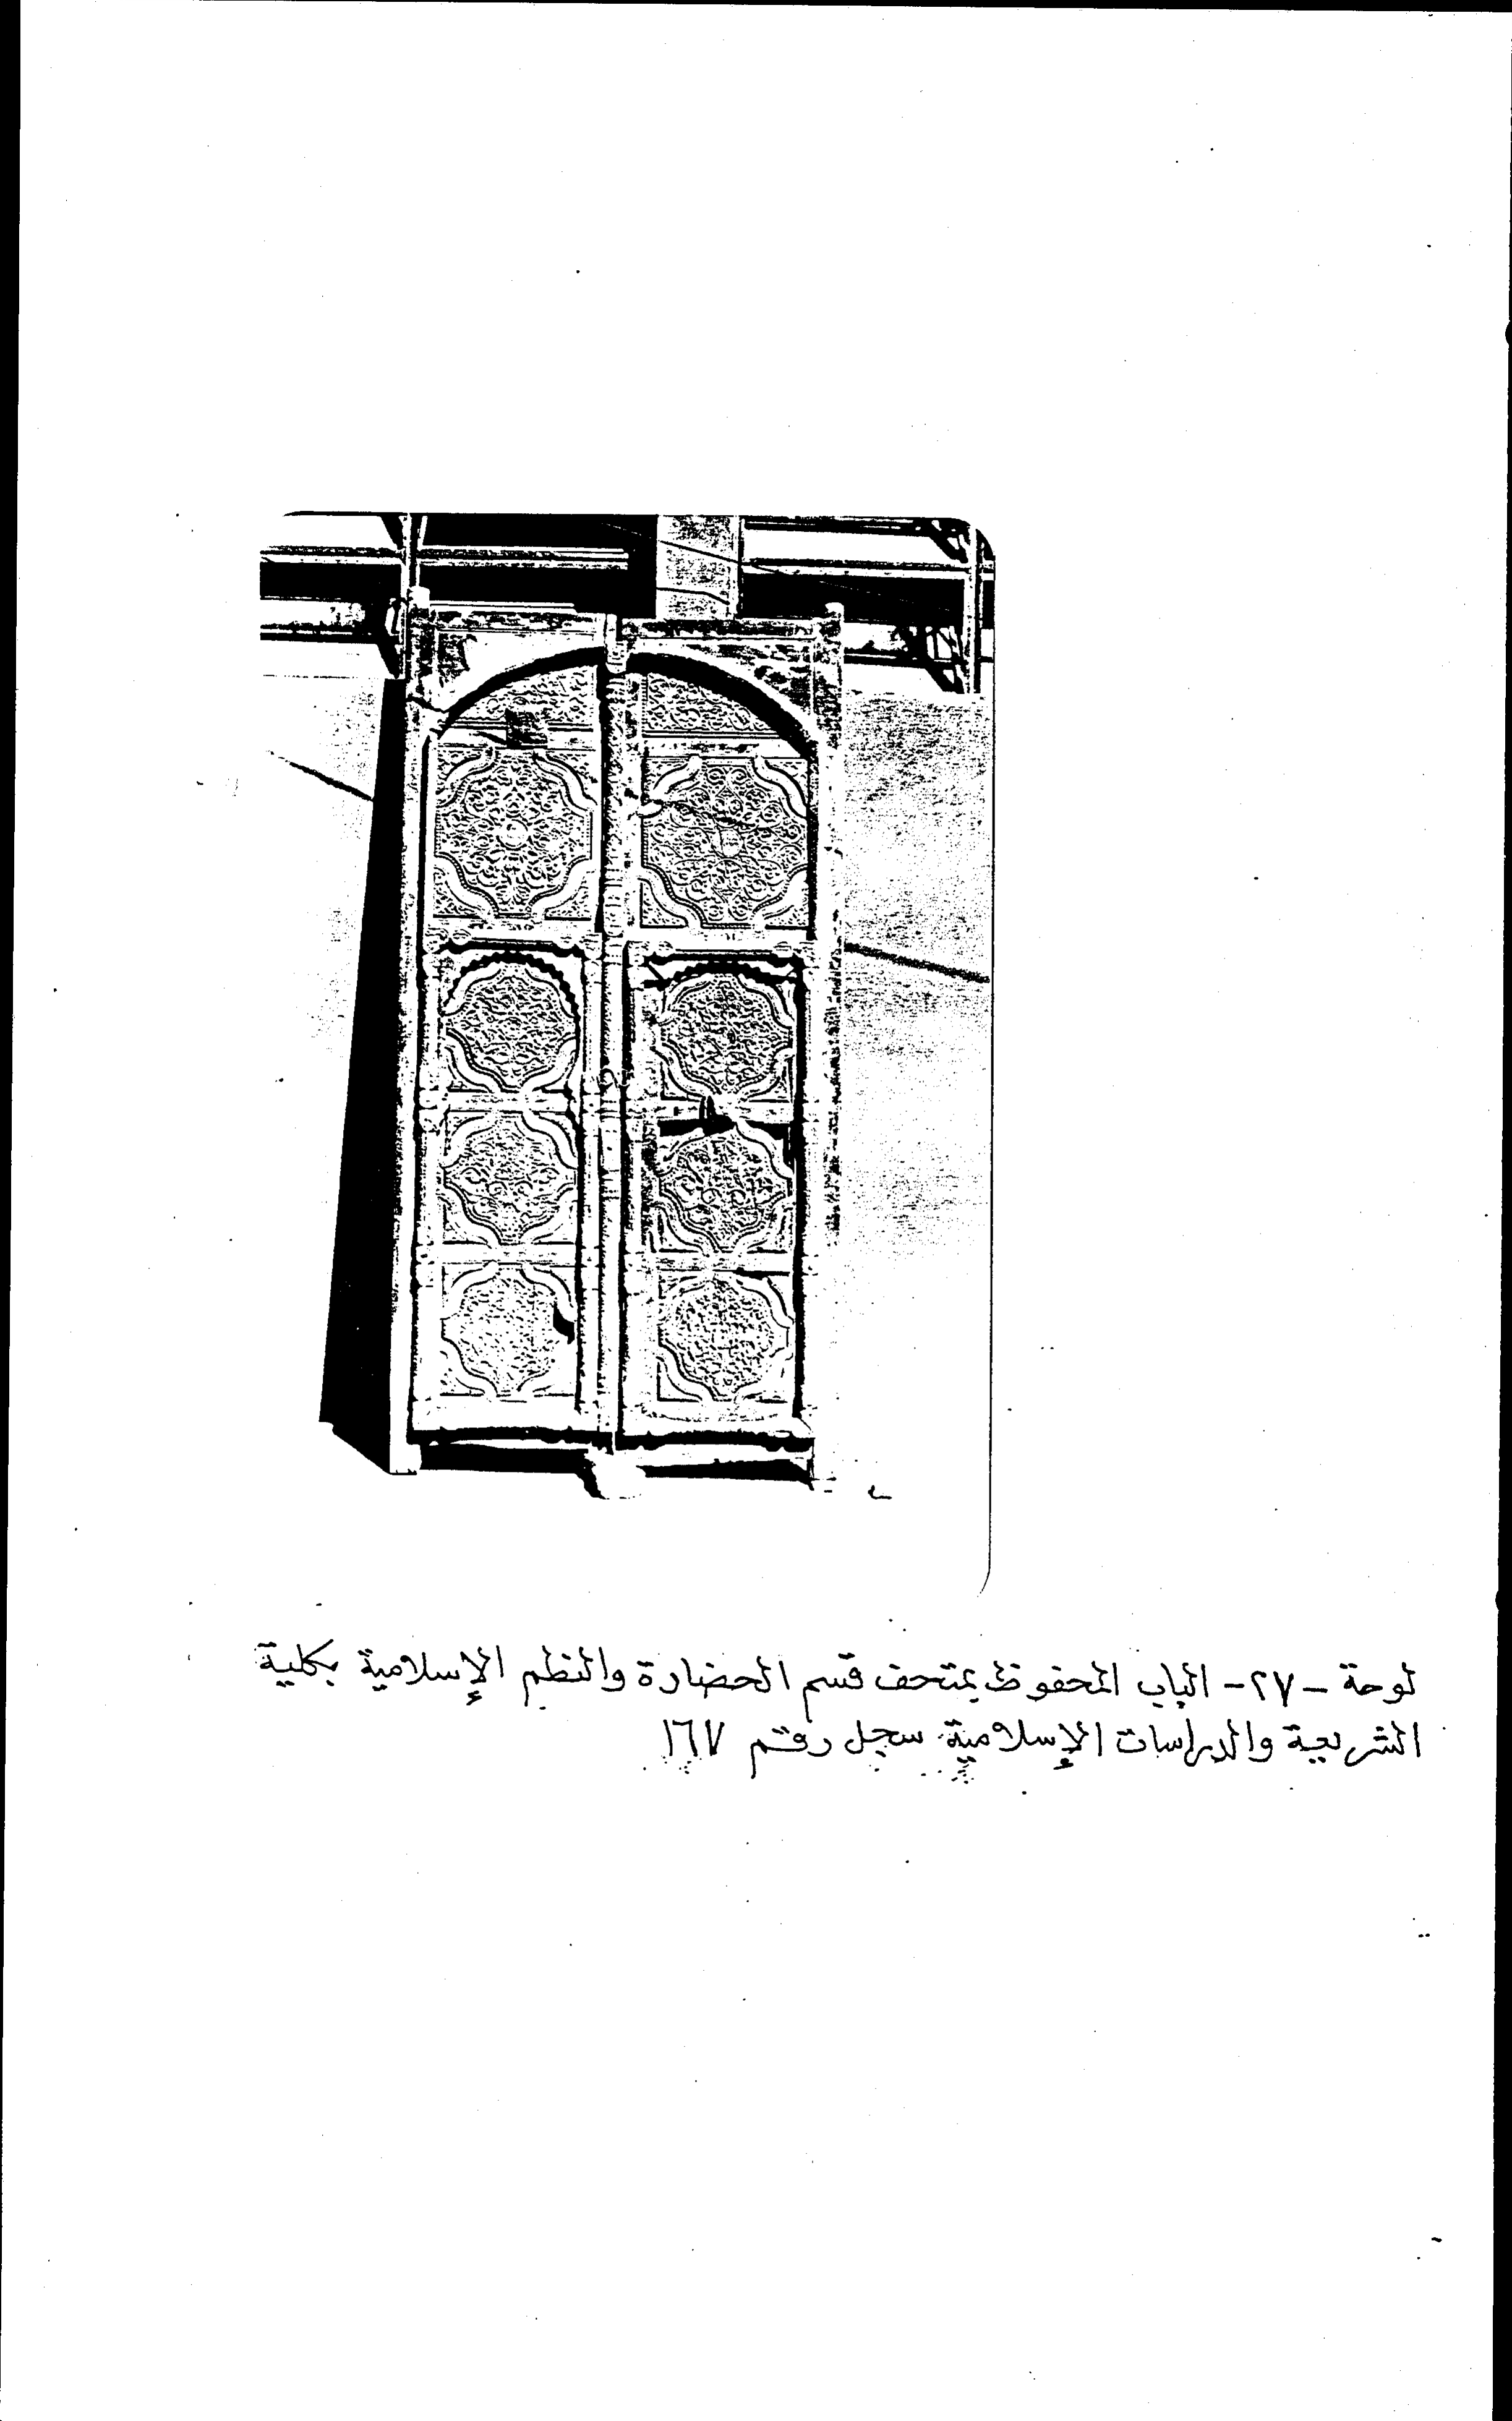 لوحة - ٢٧ - الباب المحفوظ بمتحف قسم الحضارة والنظم الإسلامية بكلية
الشريعة والدراسات الإسلامية سجل رقم ١٦٧